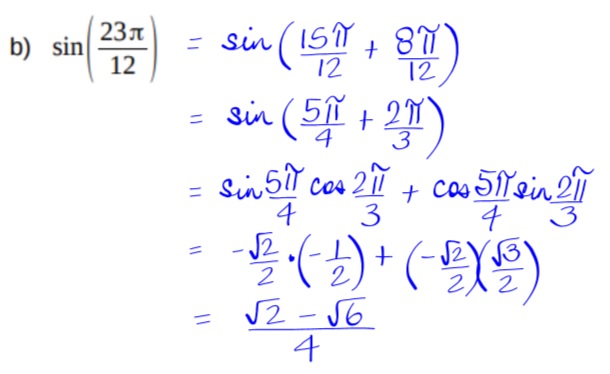 b) sin(23π/12) = sin(15π/12 + 8π/12)
= sin(5π/4 + 2π/3)
= sin 5π/4 cos 2π/3 + cos 5π/4 sin 2π/3
= -√2/2 · (-1/2) + (-√2/2)(√3/2)
= (√2 - √6)/4